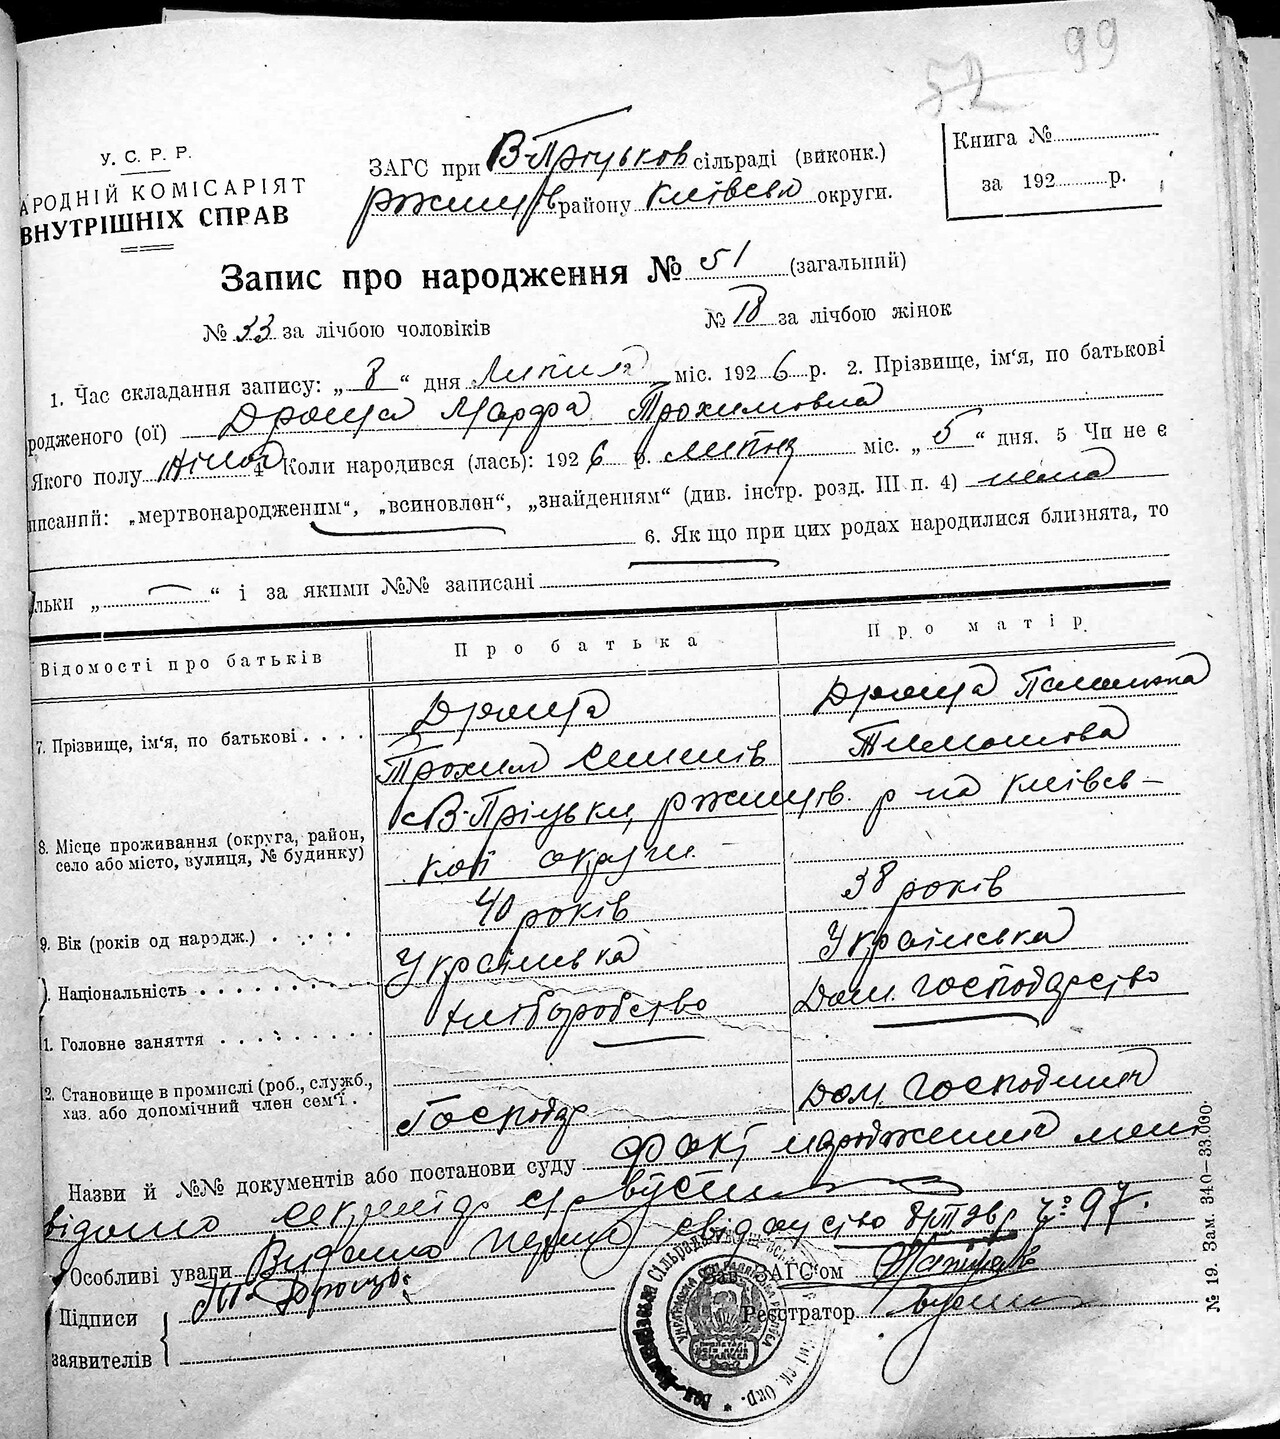 52 99
У. С. Р. Р.
АРОДНІЙ КОМІСАРІЯТ
ВНУТРІШНІХ СПРАВ
ЗАГС при В-Пріцьков сільраді (виконк.)
Ржищів району Київськ округи.
Книга №
за 192 р.
Запис про народження № 51 (загальний)
№ 33 за лічбою чоловіків № 18 за лічбою жінок
1. Час складання запису: „ 8 “ дня Липня міс. 192 6 р. 2. Прізвище, ім‘я, по батькові
родженого (ої) Дроща Марфа Трохимовна
Якого полу жіноч 4 Коли народився (лась): 192 6 р. липня міс. „ 5 “ дня. 5 Чи не є
писаний: „мертвонародженим“, „всиновлен“, „знайденням“ (див. інстр. розд. III п. 4) нема
6. Як що при цих родах народилися близнята, то
льки „ “ і за якими №№ записані
Відомості про батьків Про батька Про матір
7. Прізвище, ім‘я, по батькові . . . . Дроща Дроща Палажка
Трохим Семенів Тимошова
8. Місце проживання (округа, район, село або місто, вулиця, № будинку) с В-Пріцьки, Ржищів. р-на Київсь-
кої округи.
9. Вік (років од народж.) . . . . . 40 років 38 років
). Національність . . . . . . . . . . Українська Українська
1. Головне заняття . . . . . . . . . Хліборобство Дом. господарство
2. Становище в промислі (роб., служб., хаз. або допомічний член сем‘ї . Господар Дом. господиня
Назви й №№ документів або постанови суду факт народження мені
відомо секретар с/р
Особливі уваги Видано перше свідоцтво № 97.
Підписи
заявителів
Зав. ЗАГС‘ом
Реєстратор
№ 19. Зам. 340—33.000.